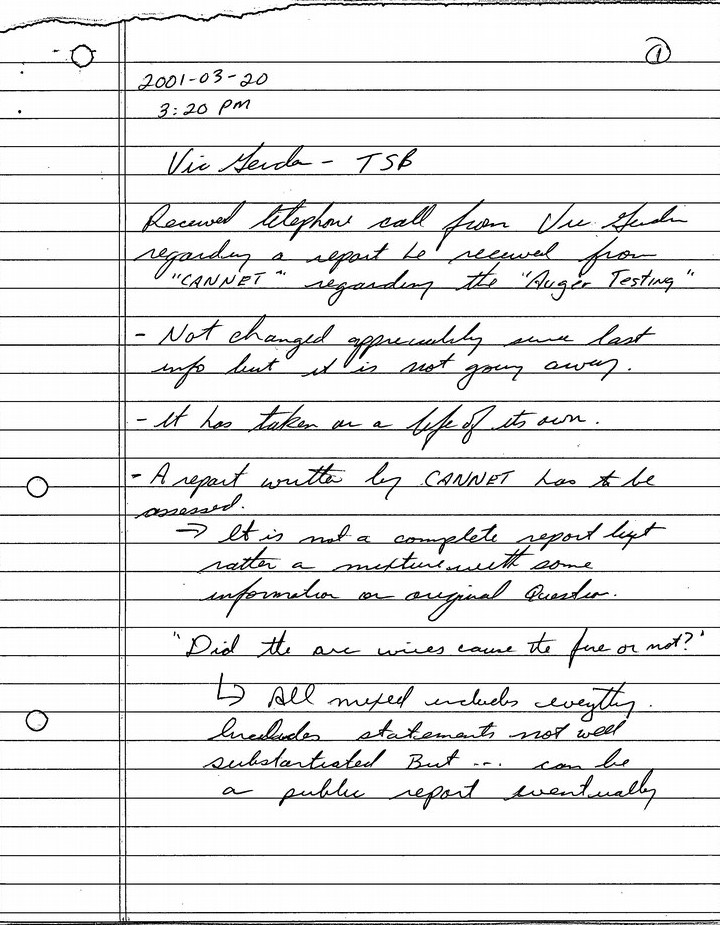 ①
2001-03-20
3:20 PM
Vic Gerden - TSB
Received telephone call from Vic Gerden
regarding a report he received from
"CANNET" regarding the "Auger Testing"
- Not changed appreciably since last
info but it is not going away.
- It has taken on a life of its own.
- A report written by CANNET has to be
assessed.
→ It is not a complete report but
rather a mixture with some
information on original Question.
"Did the arc wires cause the fire or not?"
↳ All mixed includes everything.
Includes statements not well
substantiated But --- can be
a public report eventually